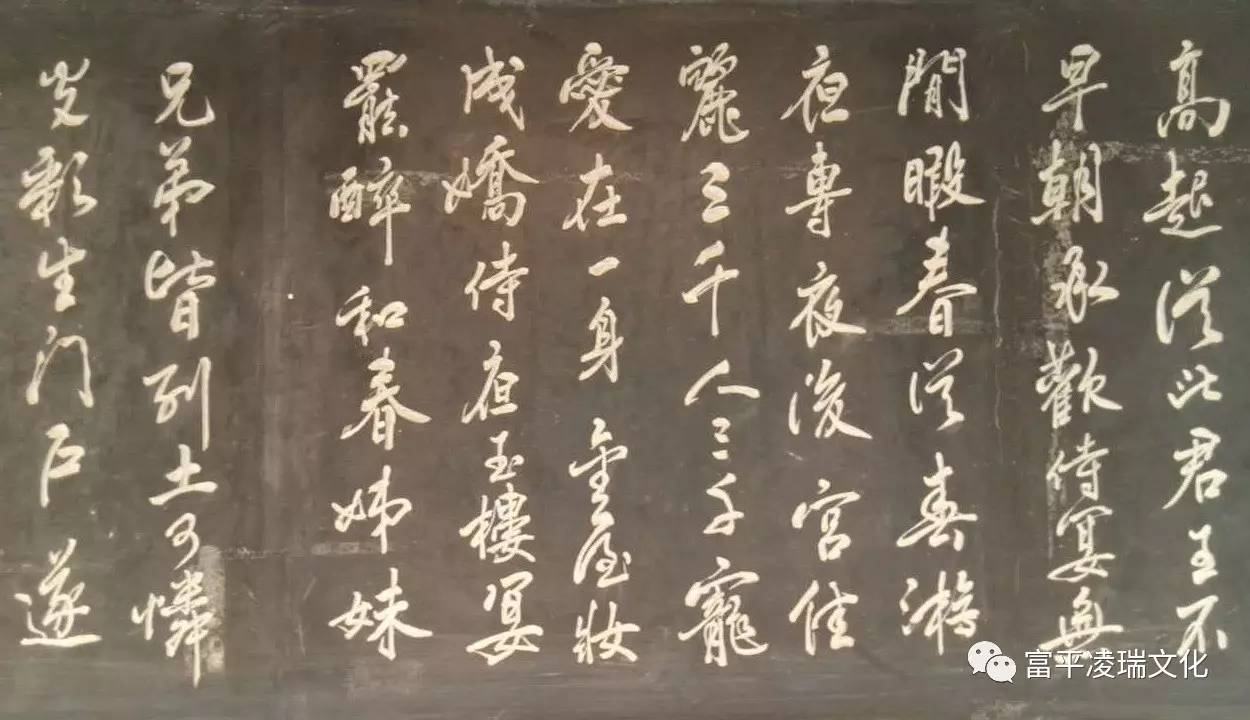 高起從此君王不
早朝承歡侍宴無
閒暇春從春游
夜專夜後宮佳
麗三千人三千寵
愛在一身金屋妝
成嬌侍夜玉樓宴
罷醉和春姊妹
兄弟皆列土可憐
光彩生门户遂
富平凌瑞文化